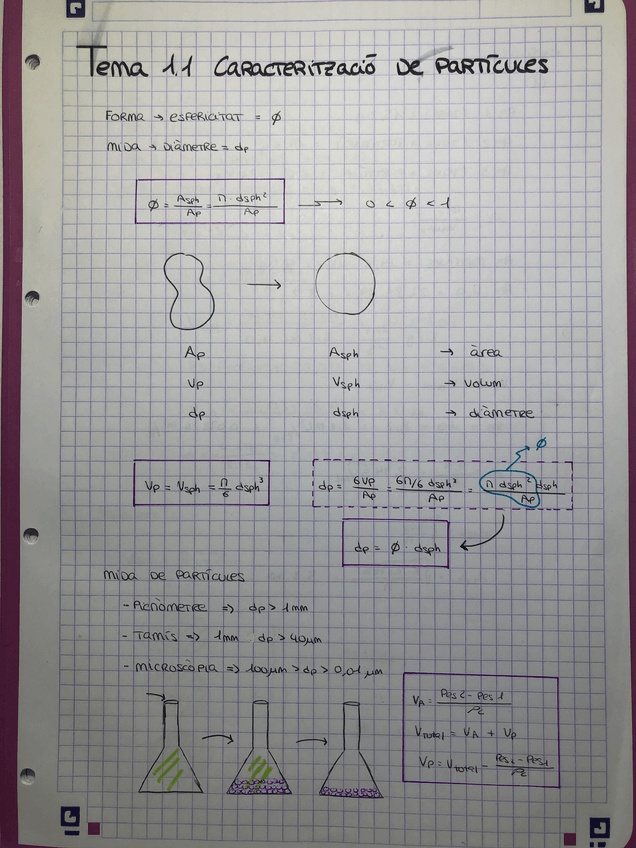 Tema 1.1 CARACTERITZACIÓ DE PARTÍCULES
FORMA → ESFERICITAT = ϕ
MIDA → DIÀMETRE = dp
ϕ = Asph/Ap = π · dsph²/Ap → 0 < ϕ < 1
Ap Asph → àrea
Vp Vsph → VOLUM
dp dsph → DIÀMETRE
ϕ
Vp = Vsph = π/6 dsph³
dp = 6Vp/Ap = 6π/6 dsph³/Ap = π dsph² dsph/Ap
dp = ϕ · dsph
MIDA DE PARTÍCULES
- PICNÒMETRE => dp > 1mm
- TAMÍS => 1mm dp > 40μm
- MICROSCÒPIA => 100μm > dp > 0,01 μm
VA = Pes2 - Pes1/ρL
VTOTAL = VA + Vp
Vp = VTOTAL - Pes2 - Pes1/ρL